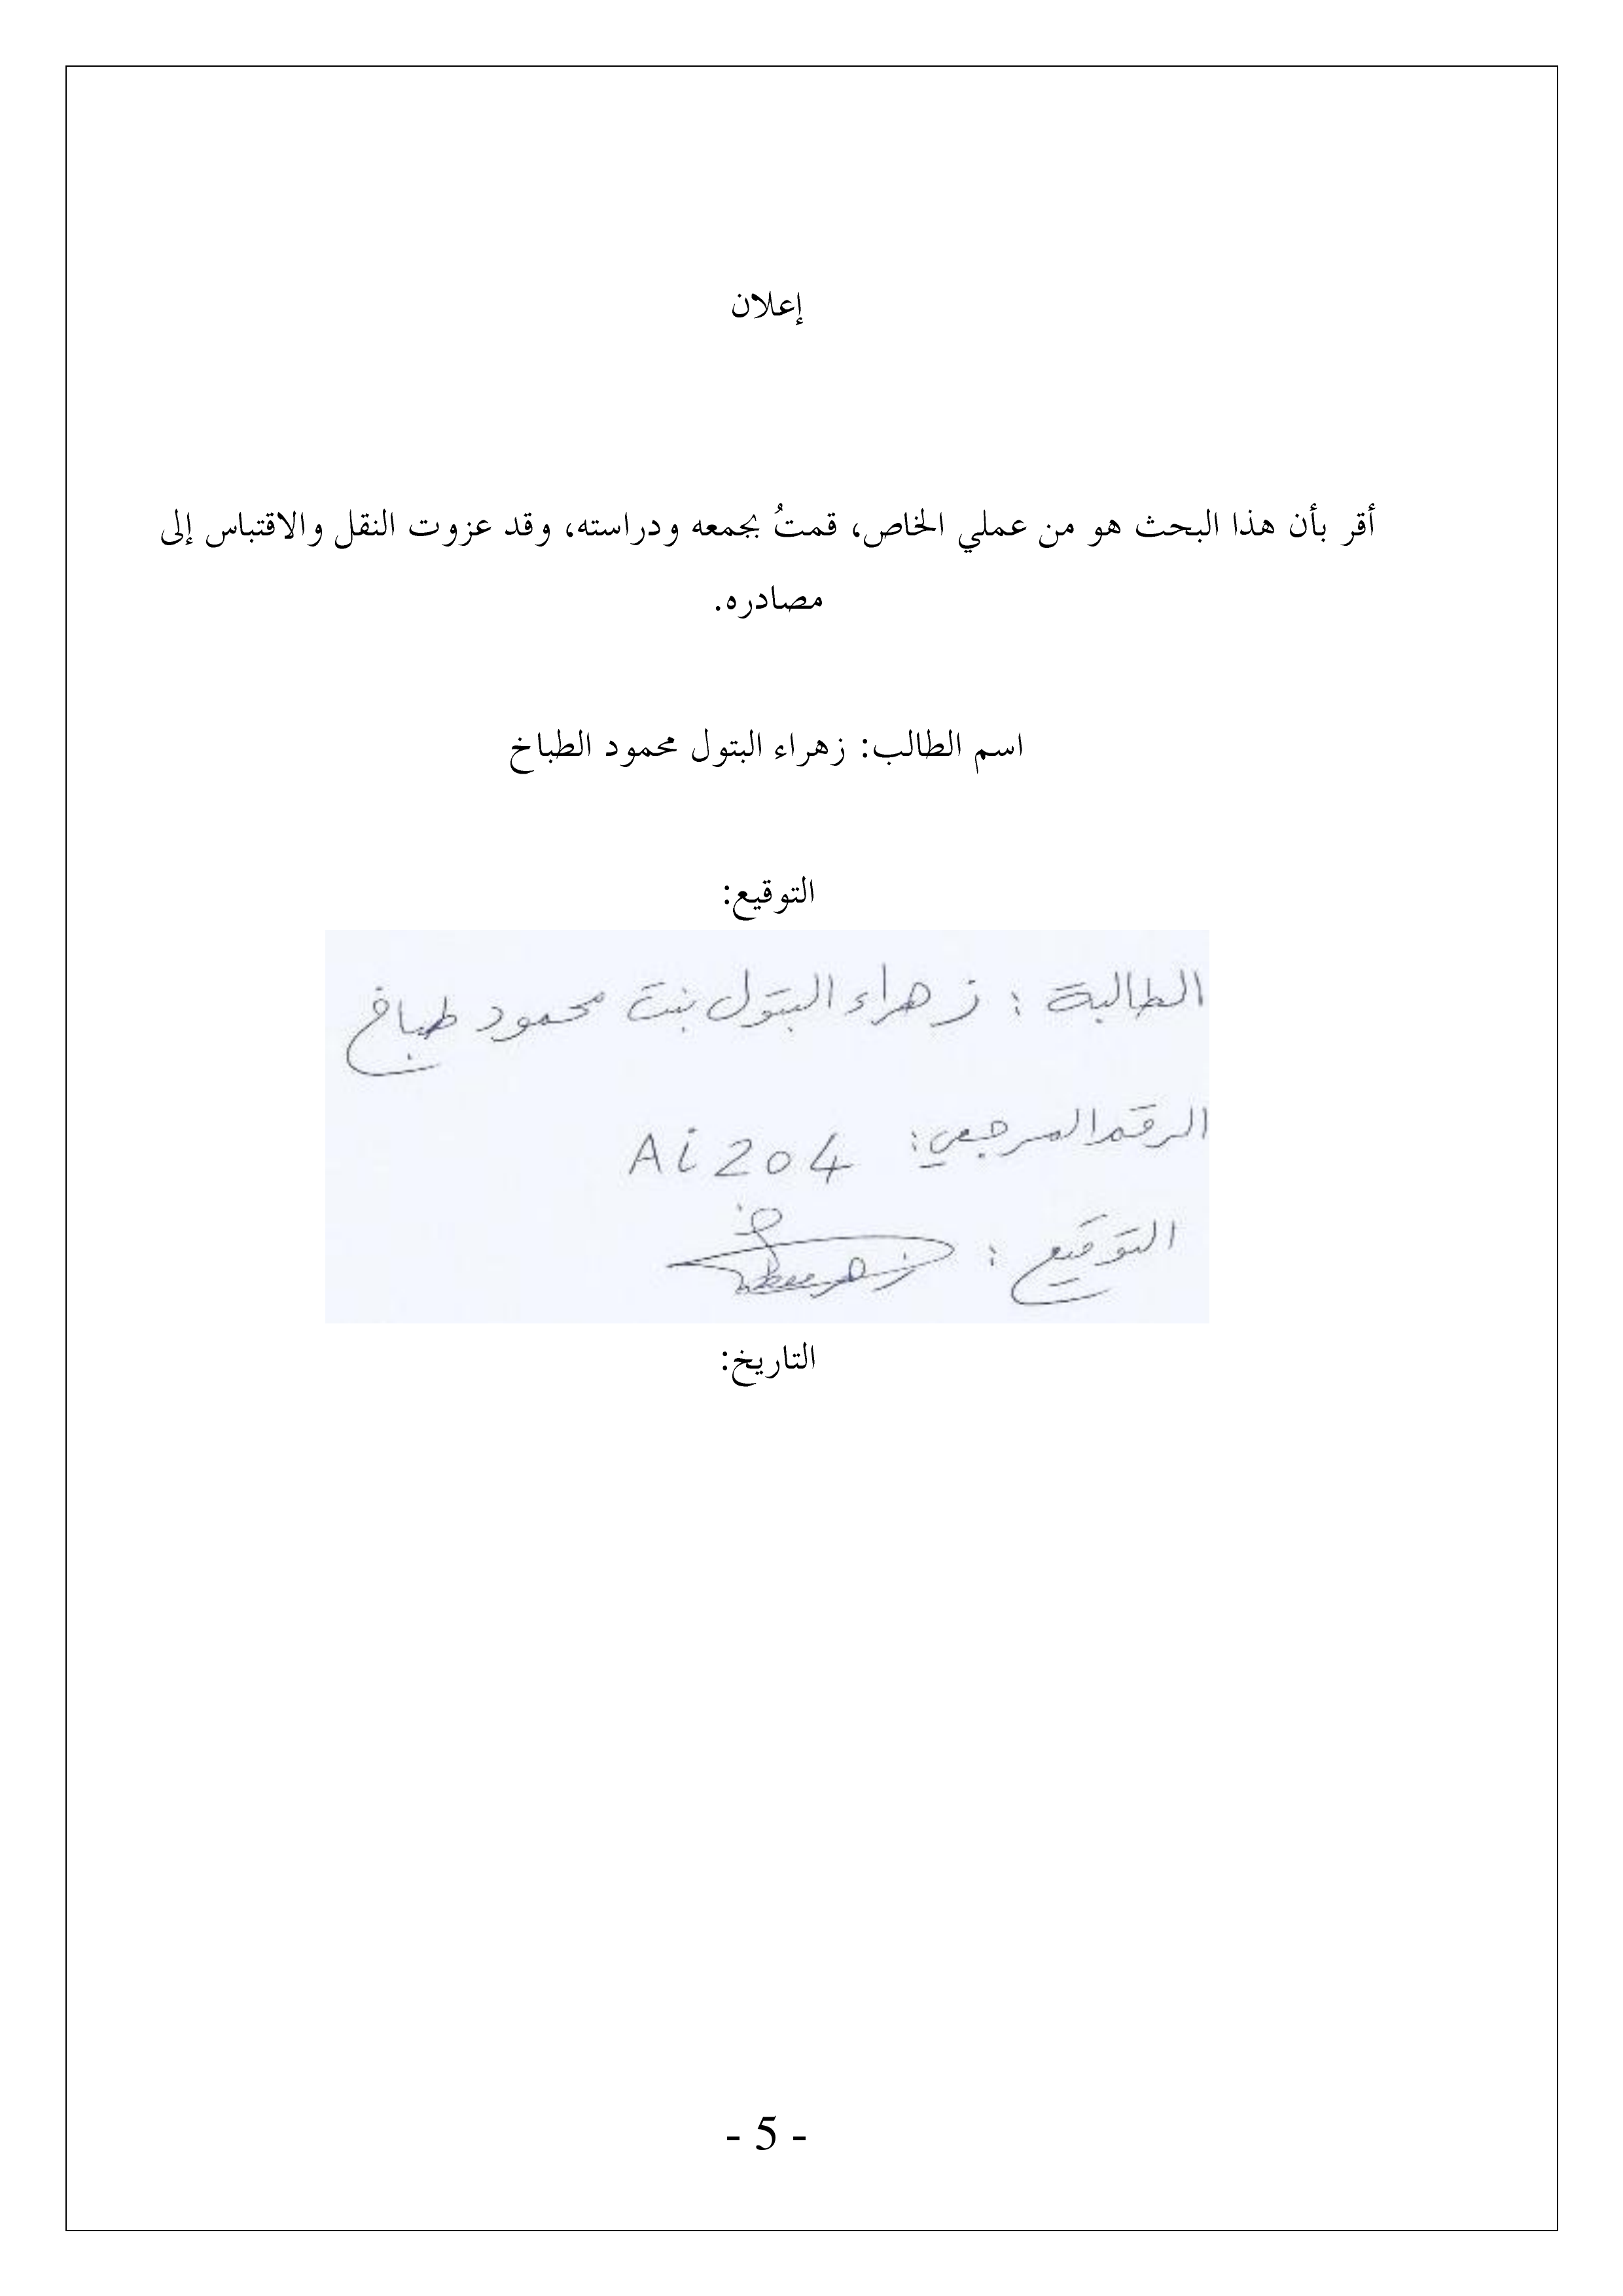 إعلان
أقر بأن هذا البحث هو من عملي الخاص، قمتُ بجمعه ودراسته، وقد عزوت النقل والاقتباس إلى
مصادره.
اسم الطالب: زهراء البتول محمود الطباخ
التوقيع:
الطالبة : زهراء البتول بنت محمود طباخ
الرقم المرجعي: Ai 204
التوقيع :
التاريخ:
- 5 -